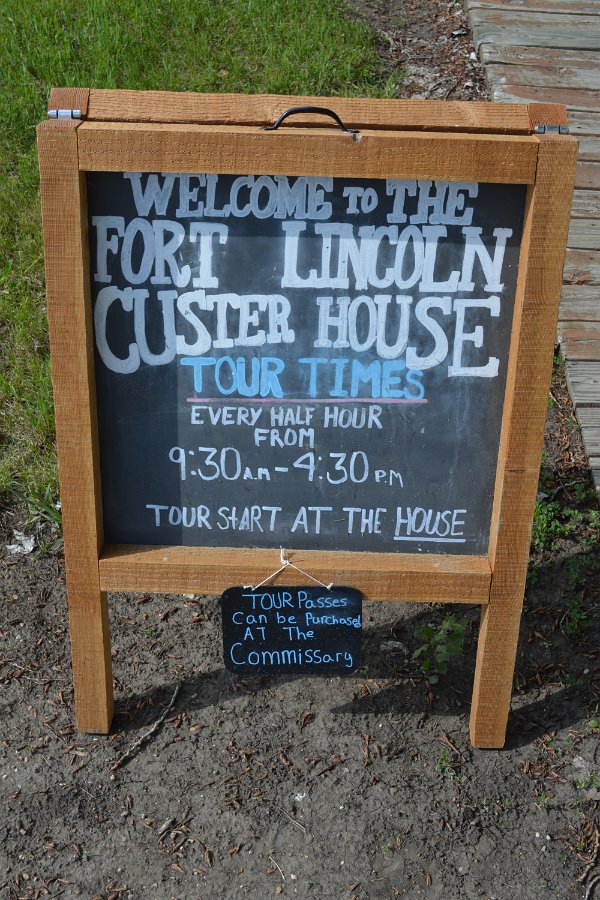 WELCOME TO THE
FORT LINCOLN
CUSTER HOUSE
TOUR TIMES
EVERY HALF HOUR
FROM
9:30 A.M - 4:30 P.M
TOUR START AT THE HOUSE
TOUR Passes
Can be Purchased
AT The
Commissary